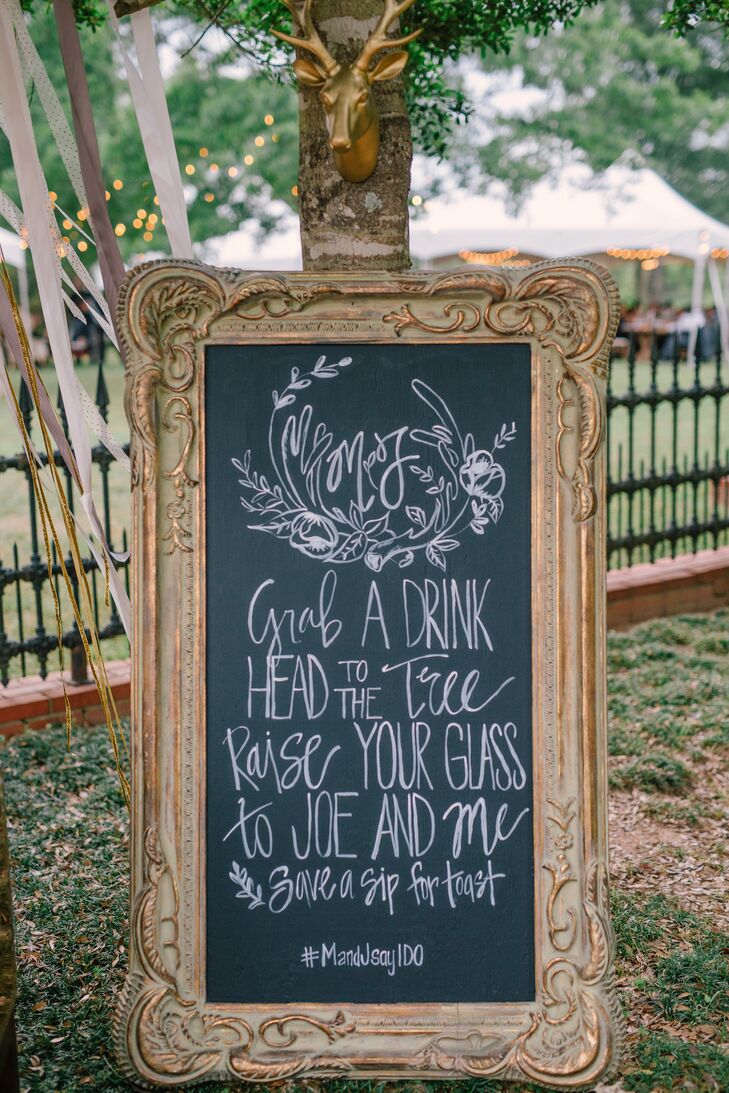 Grab A DRINK
HEAD TO THE Tree
Raise YOUR GLASS
to JOE AND me
Save a sip for toast
#MandJsayIDO